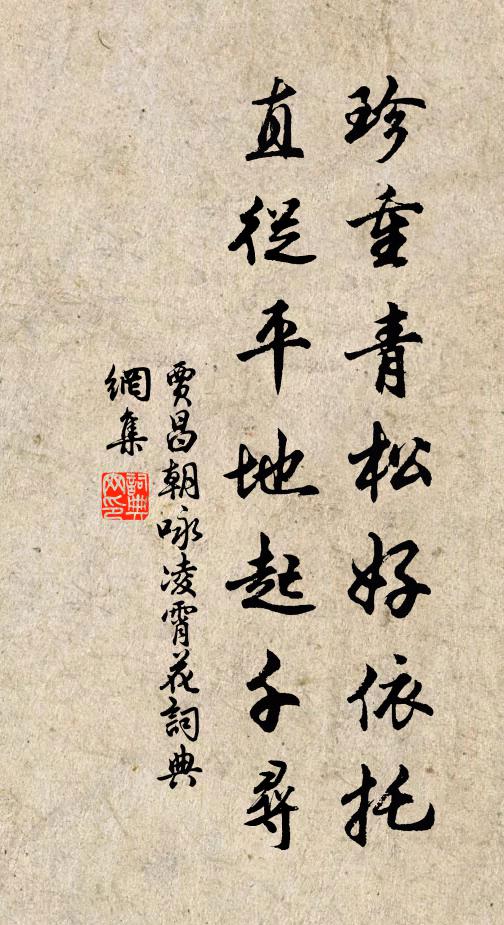 珍重青松好依托
直從平地起千尋
賈昌朝咏凌霄花詞典
網集
詞典
网印